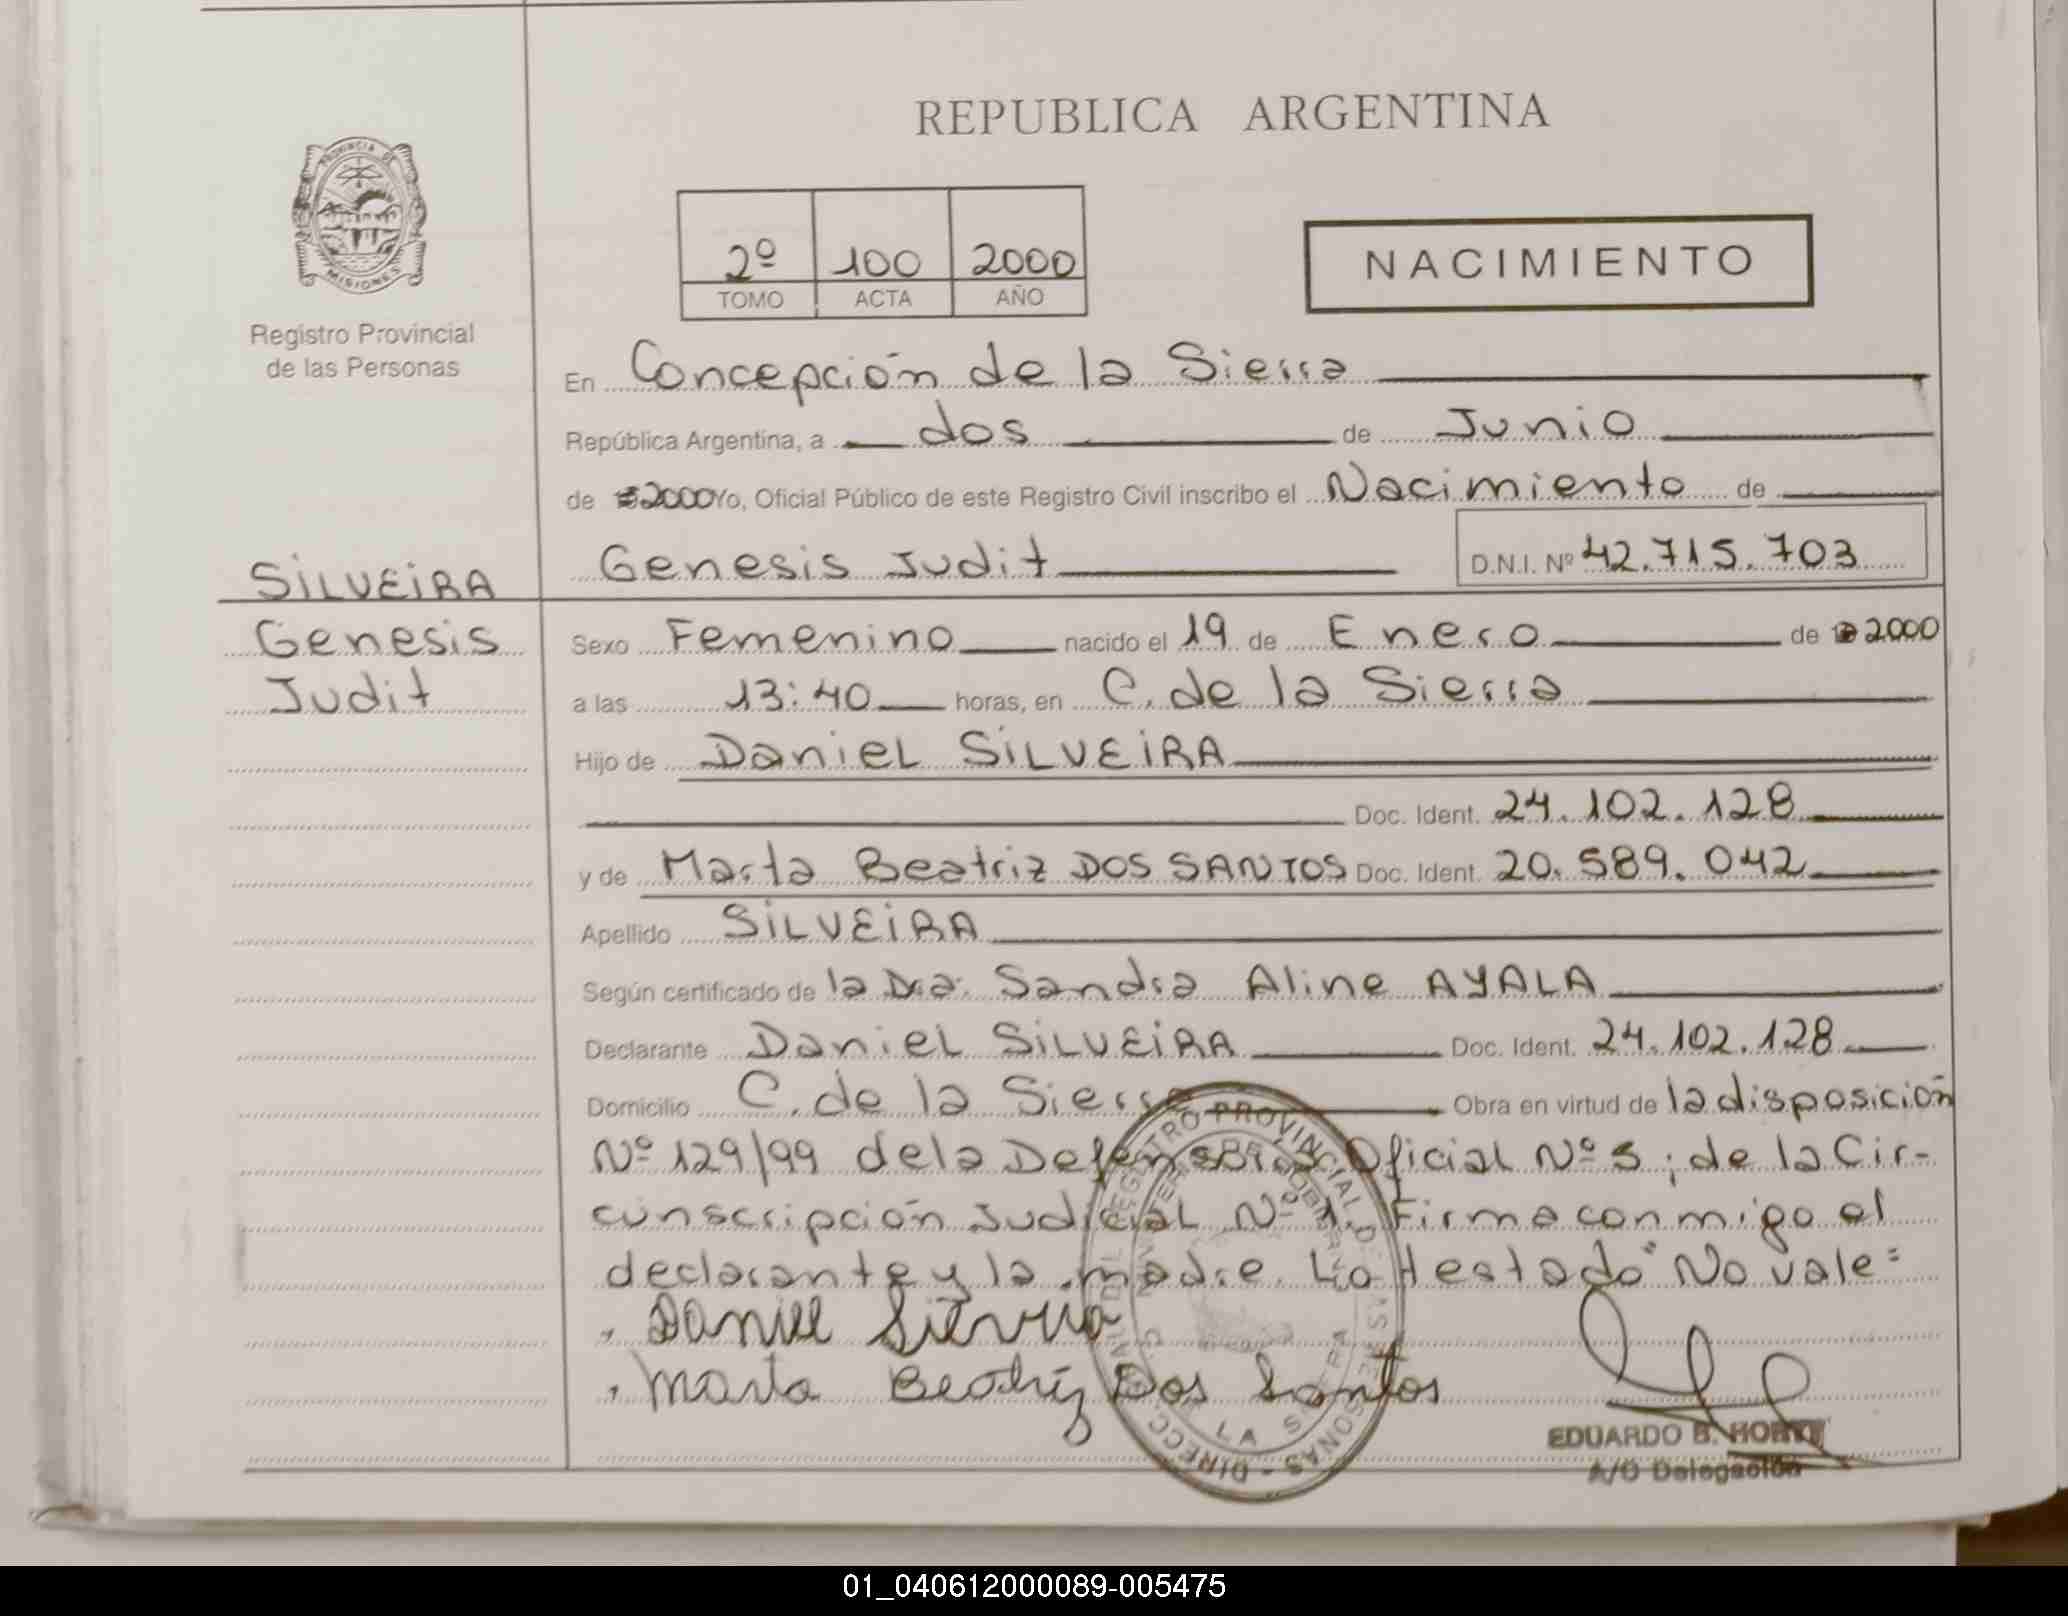 REPUBLICA ARGENTINA
PROVINCIA DE
MISIONES
Registro Provincial
de las Personas
2º 100 2000
TOMO ACTA AÑO
NACIMIENTO
En Concepción de la Sierra
República Argentina, a dos de Junio
de 2000 Yo, Oficial Público de este Registro Civil inscribo el Nacimiento de
Genesis Judit D.N.I. Nº 42.715.703
SILVEIRA
Genesis
Judit
Sexo Femenino nacido el 19 de Enero de 2000
a las 13:40 horas, en C. de la Sierra
Hijo de Daniel SILVEIRA
Doc. Ident. 24.102.128
y de Marta Beatriz DOS SANTOS Doc. Ident. 20.589.042
Apellido SILVEIRA
Según certificado de la Dra. Sandra Aline AYALA
Declarante Daniel SILVEIRA Doc. Ident. 24.102.128
Domicilio C. de la Sierra Obra en virtud de la disposición
Nº 129/99 de la Defensoria Oficial Nº 5; de la Cir-
cunscripción Judicial Nº 1. Firma conmigo el
declarante y la madre. Lo testado "No vale"
Daniel
Marta Beatriz Dos Santos
EDUARDO B.
A/C Delegación
01_040612000089-005475